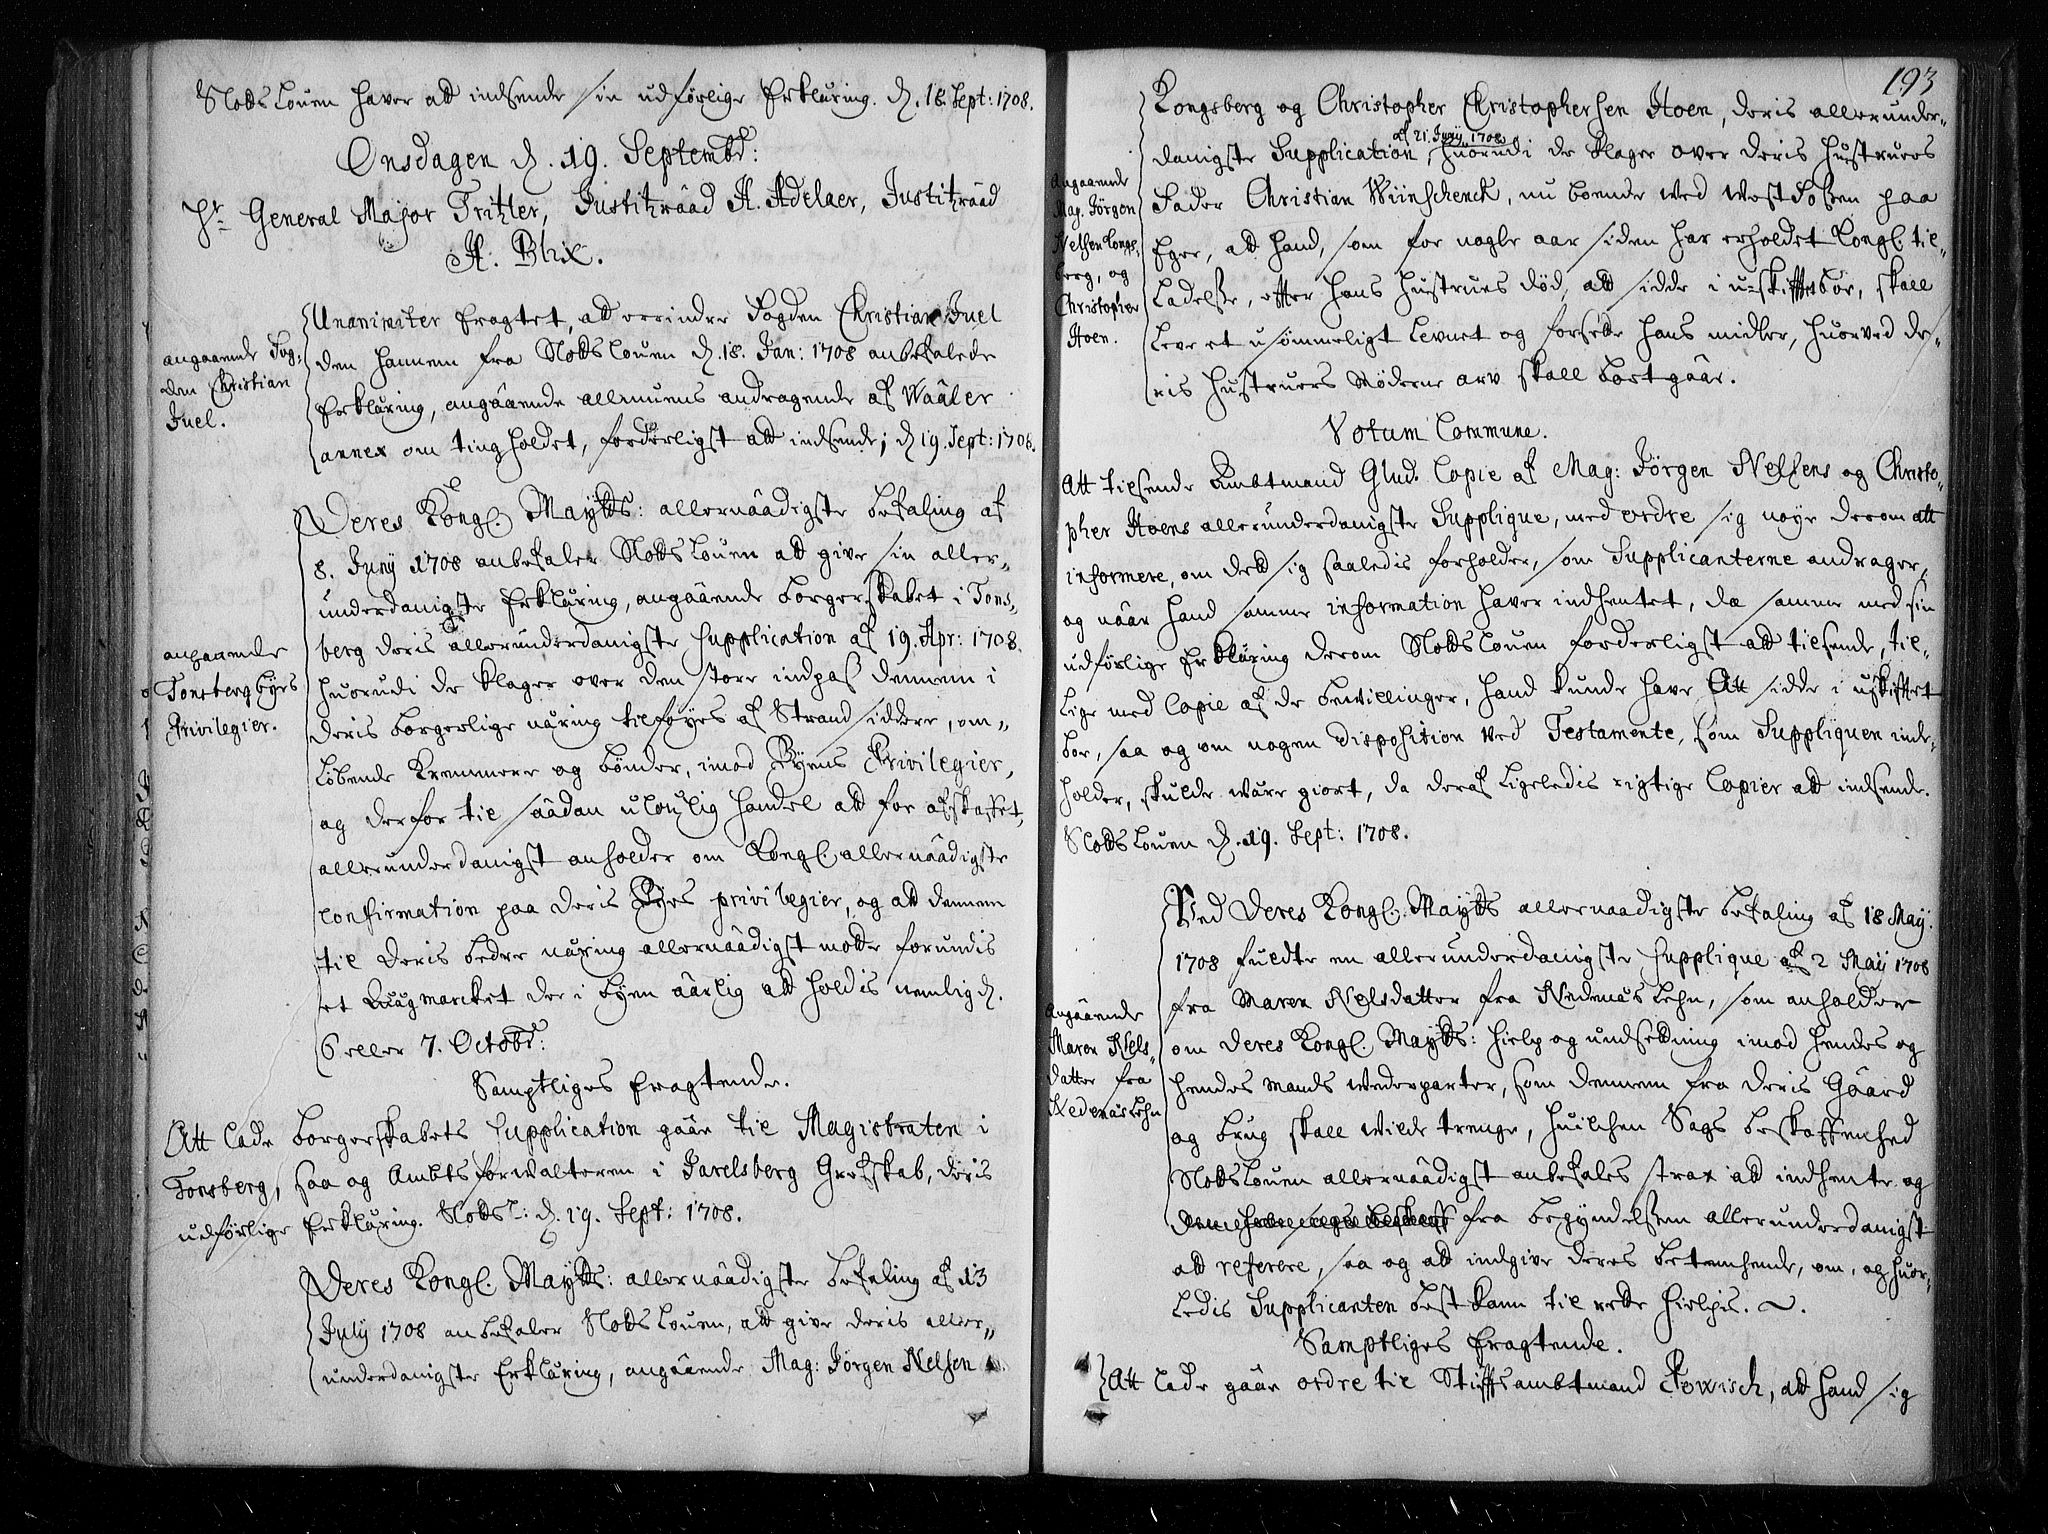 Slots Louen haver att indsende sin udførlige Erklæring. d. 18. Sept: 1708.
Onsdagen d. 19. Septembr:
Hr. General Major Tritzler, Justitzrååd H. Adelaer, Justitzrååd
H. Blix.
angaaende Fog-
den Christian
Juel.
Unanimiter Eragtet, att errindre Fogden Christian Juel
den hannem fra Slots Louen d. 18. Jan: 1708 anbefalede
Erklæring, angåående allmuens andragende af Wååler
annex om tingholdet, forderligst att indsende; d 19. Sept: 1708.
angaaende
Tonsberg byes
Privilegier.
Deres Kongl. Maytts: allernåådigste befaling af
8. Juny 1708 anbefaler Slots Louen att give sin aller-
underdanigste Erklæring, angåående borgerskabet i Tons-
berg deris allerunderdanigste supplication af 19. Apr: 1708.
huorudi de klager over den store indpas dennem i
deris borgerlige næring tilføyes af Strandsiddere, om-
løbende Kremmere og bønder, imod Byens Privilegier,
og derfor til såådan ulovlig handel att for afskaffet,
allerunderdanigst anholder om Kongl. allernåådigste
confirmation paa deris Byes privilegier, og att dennem
til deris bedre næring allernåådigst motte forundis
et Qvægmarcket der i byen åårlig att holdis nemlig d.
6 eller 7. Octobr:
Samptliges Eragtende.
Att lade borgerskabets supplication gååe til Magistraten i
Tonsberg, saa og Ambtsforwalteren i Jarelsberg Grefskab, deris
udførlige Erklæring. Slots L: d. 19. Sept: 1708.
Deres Kongl. Maytts: allernåådigste befaling af 13
July 1708 anbefaler Slots Louen, att give deris aller-
underdanigste Erklæring, angåående Mag: Jörgen Nelsen
193
Angaaende
Mag. Jörgen
Nelsen Kongs-
berg, og
Christopher
Hoen.
Kongsberg og Christopher Christophersen Hoen, deris allerunder-
af 21. Juny 1708
danigste Supplication, huorudi de klager over deris hustruers
Fader Christian Wiinschenck, nu boende ved Westfossen paa
Eger, att hand, som for nogle aar siden har erholdet Kongl. til-
ladelse, effter hans hustrues død, att sidde i u-skifftet boe, skall
leve et usømmeligt levnet og forsette hans midler, huorved de-
ris hustruers Møderne arv skall bortgååe.
Votum Commune.
Att tilsende Ambtmand Glud. Copie af Mag: Jörgen Nelsens og Christo-
pher Hoens allerunderdanigste Supplique, med ordre sig nøye derom att
informere, om det sig saaledis forholder, som Supplicanterne andrager,
og nåår hand samme information haver indhentet, da samme med sin
udførlige Erklæring derom Slots Louen forderligst att tilsende, til-
lige med Copie af de bewillinger, hand kunde have att sidde i uskifftet
boe, saa og om nogen disposition ved Testamente, som Suppliquen inde-
holder, skulde wære giort, da deraf ligeledis rigtige Copier att indsende.
Slots Louen d. 19. Sept: 1708.
Angåående
Maren Nels-
datter fra
Nedenæs Lehn
Ved Deres Kongl: Maytts allernaadigste befaling af 18 May:
1708 fuldte en allerunderdanigste supplique af 2 May 1708
fra Maren Nelsdatter fra Nedenæs Lehn, som anholder
om Deres Kongl. Maytts: hielp og undsettning imod hendes og
hendes mands wederparter, som dennem fra deris Gåård
og brug skall wilde trenge, huilchen Sags beskaffenhed
Slots Louen allernåådigst anbefales strax att indhente og
fra begyndelsen allerunderdanigst
att referere, saa og att indgive deres betenchende, om, og huor-
ledis Supplicanten best kann til rette hielpis.
Samptliges Eragtende.
Att lade gååe ordre til Stifftsambtmand Powisch, att hand sig